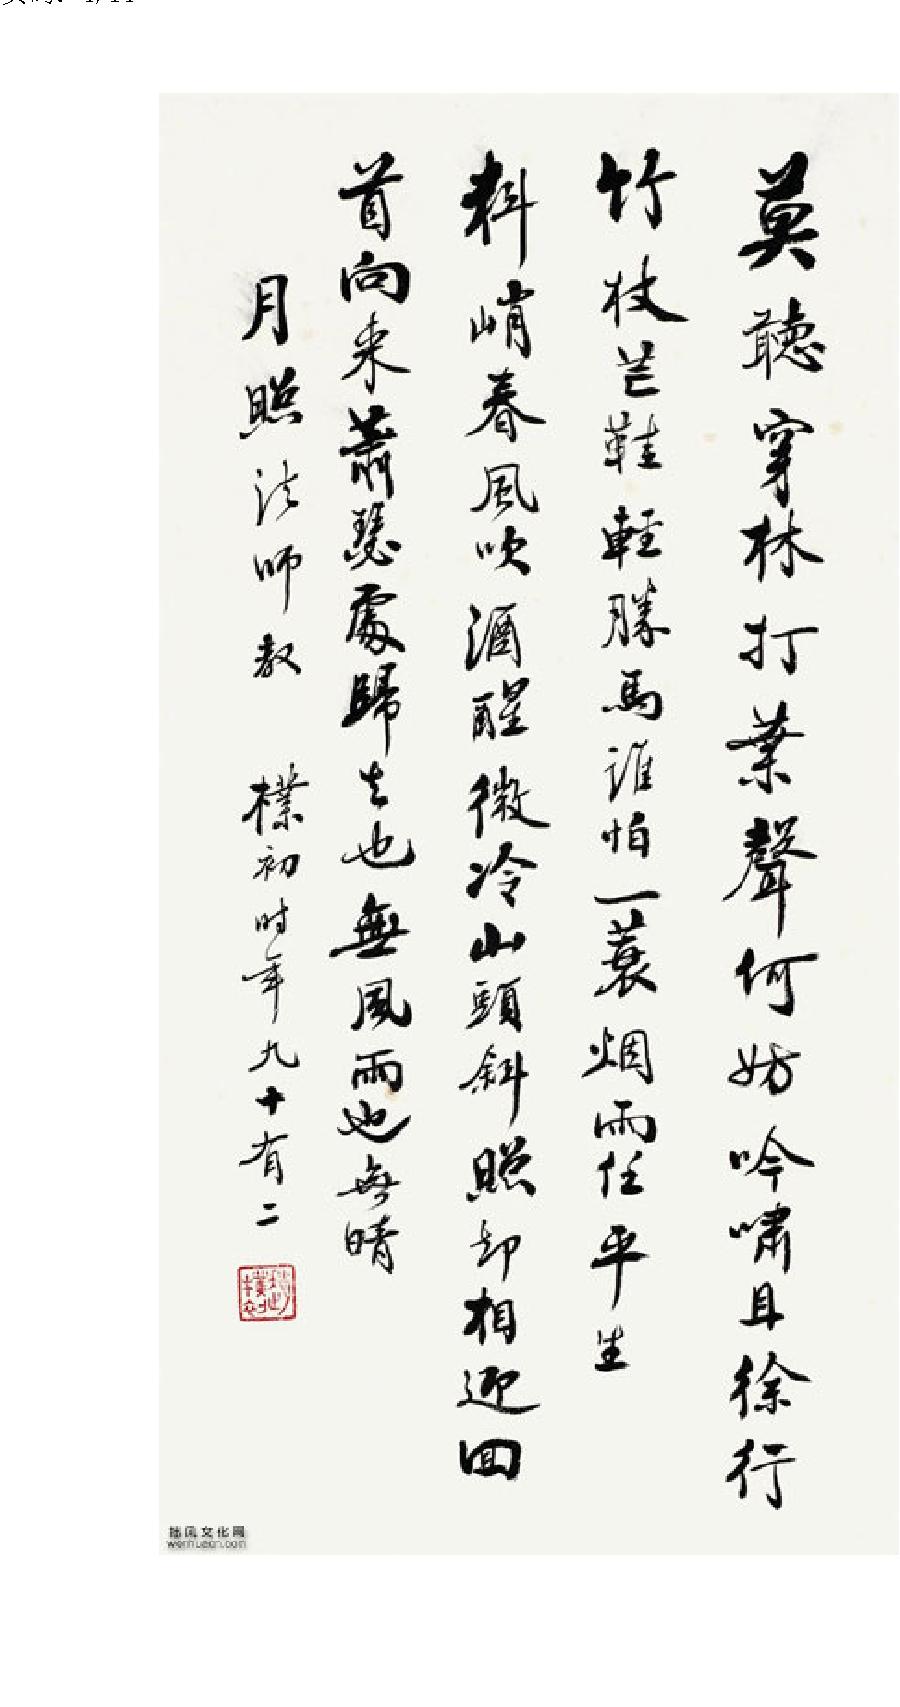 莫聽穿林打葉聲何妨吟嘯且徐行
竹杖芒鞋輕勝馬誰怕一蓑烟雨任平生
料峭春風吹酒醒微冷山頭斜照却相迎回
首向来蕭瑟處歸去也無風雨也無晴
月照法師教 樸初时年九十有二
拙风文化网
wenhuacn.com